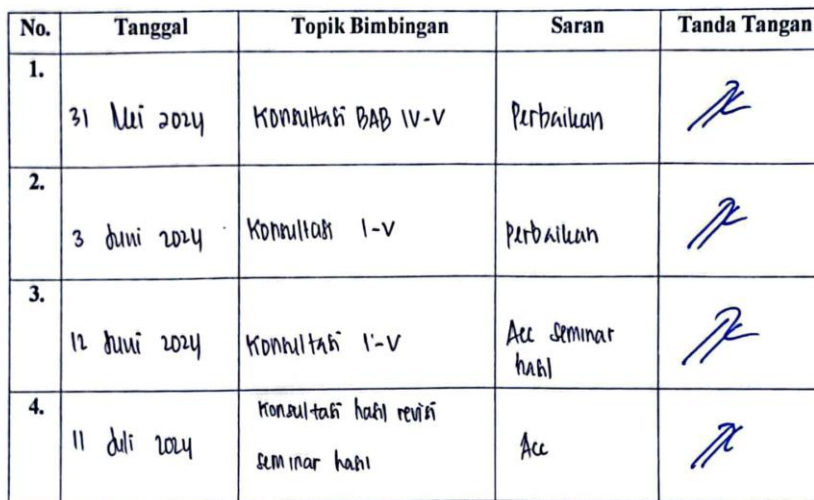 No. Tanggal Topik Bimbingan Saran Tanda Tangan
1. 31 Mei 2024 Konsultasi BAB IV-V Perbaikan
2. 3 Juni 2024 Konsultasi I-V Perbaikan
3. 12 Juni 2024 Konsultasi I-V Acc seminar
hasil
4. 11 Juli 2024 Konsultasi hasil revisi
seminar hasil Acc